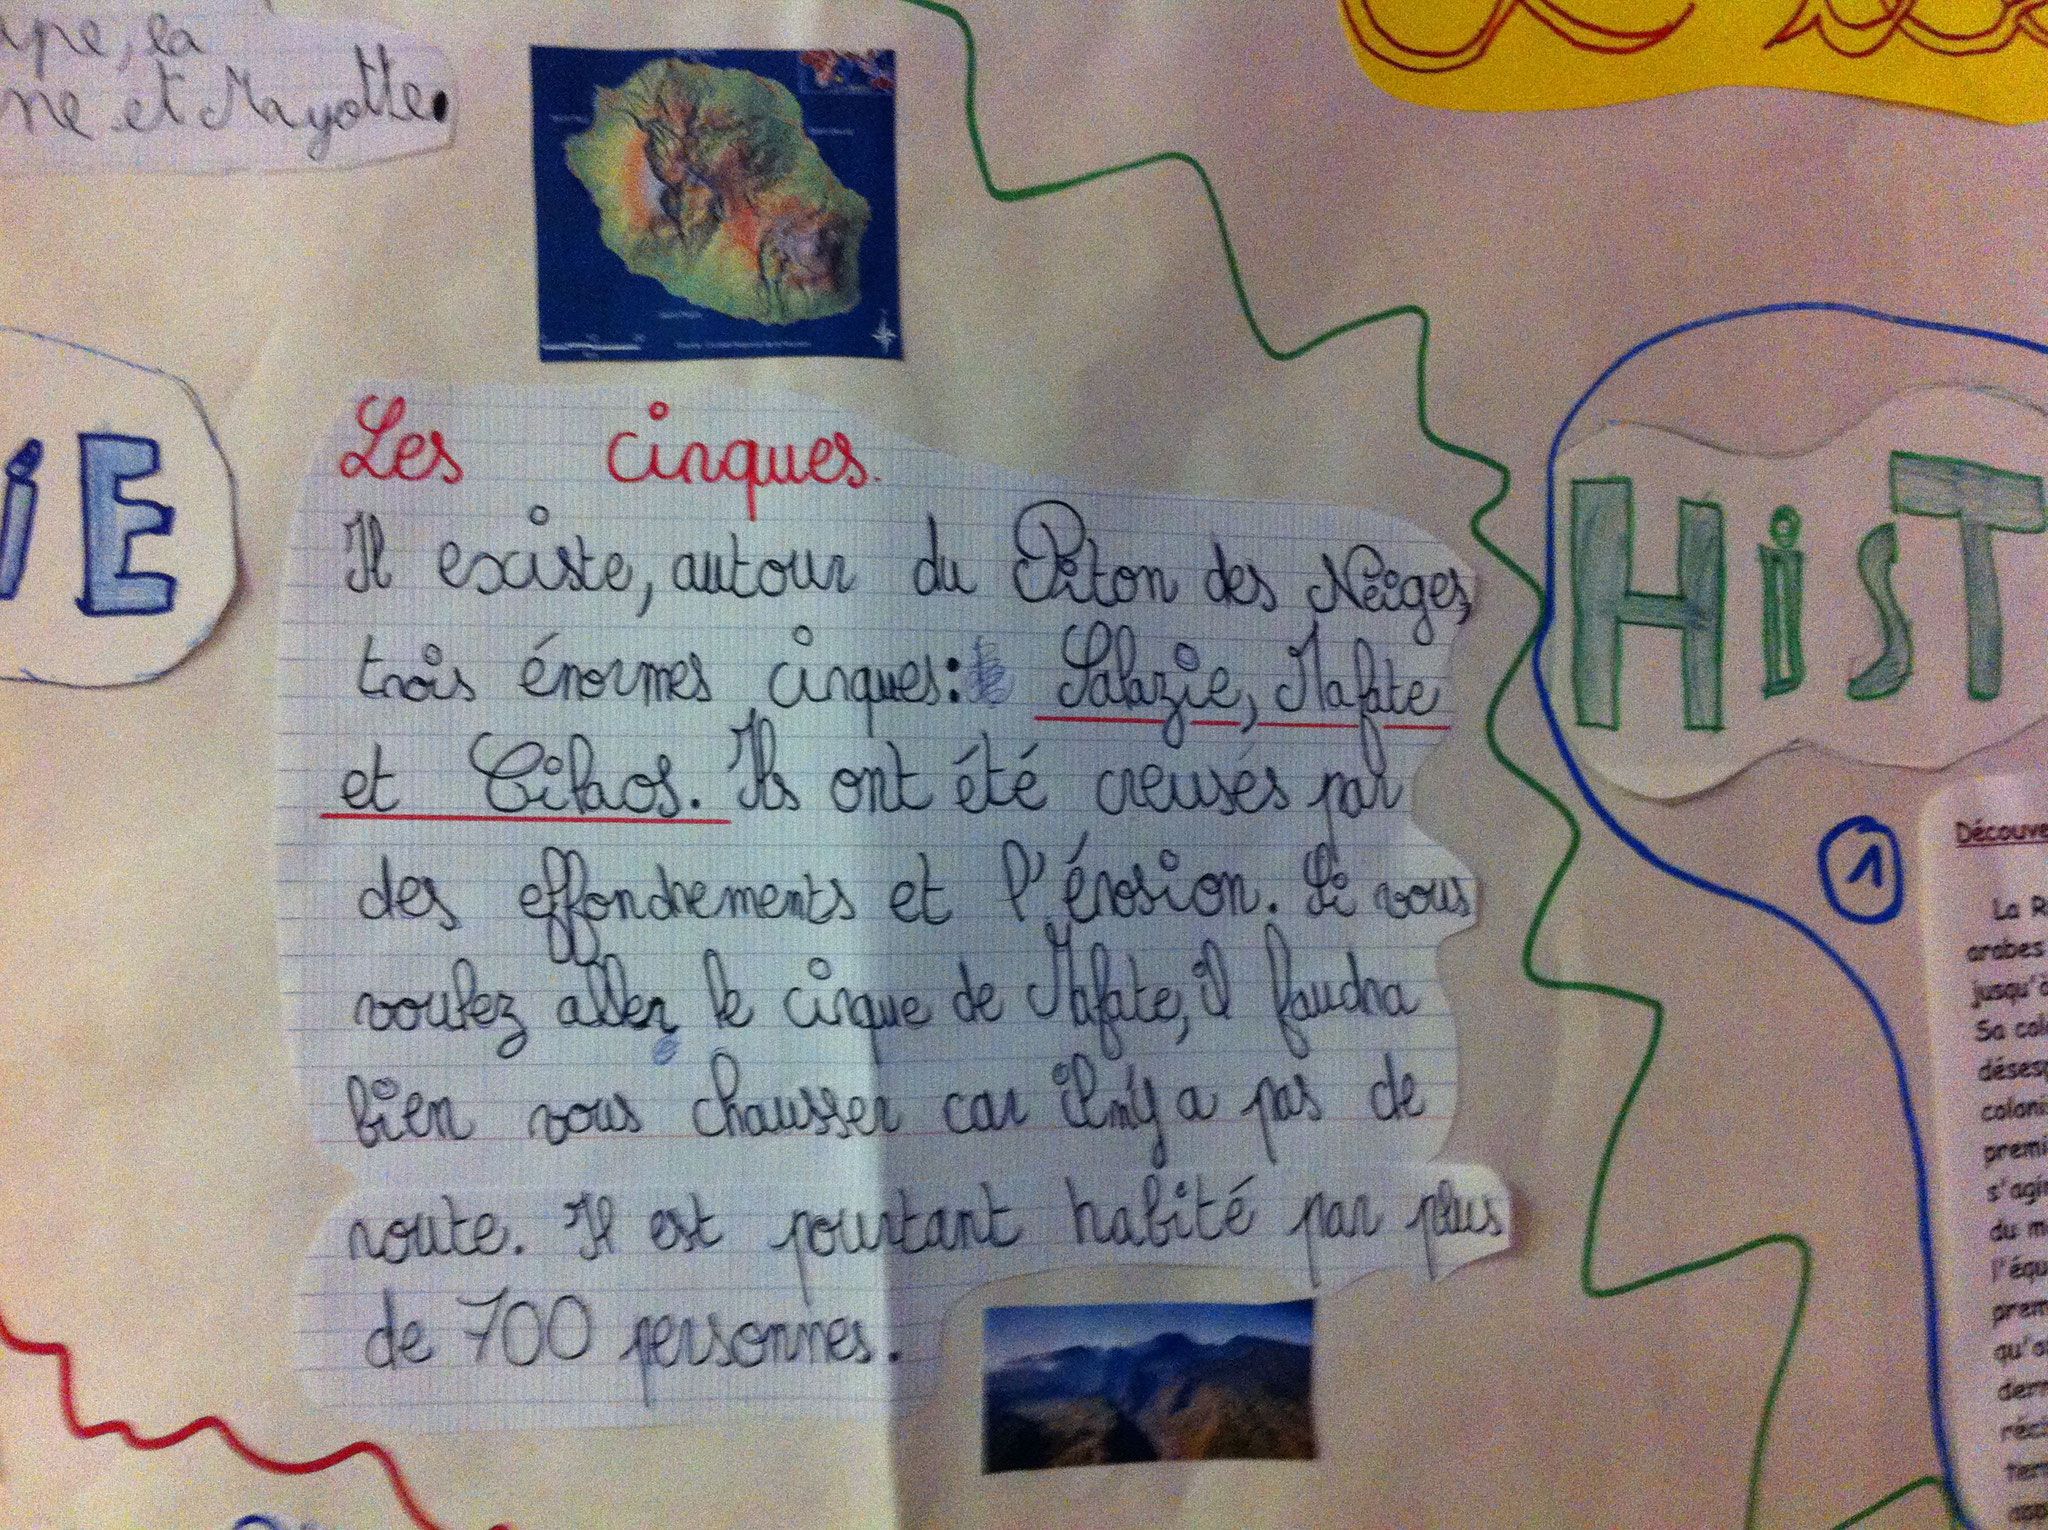 la
ne et Mayotte.
iE
Les cirques.
Il existe, autour du Piton des Neiges,
trois énormes cirques: Salazie, Mafate
et Cilaos. Ils ont été creusés par
des effondrements et l'érosion. Si vous
voulez aller le cirque de Mafate, il faudra
bien vous chausser car il n'y a pas de
route. Il est pourtant habité par plus
de 700 personnes.
HisT
1
Découve
La R
arabes
jusqu'à
Sa col
désesp
coloni
premi
s'agi
du m
l'équ
prem
qu'a
dern
réc
ter
app